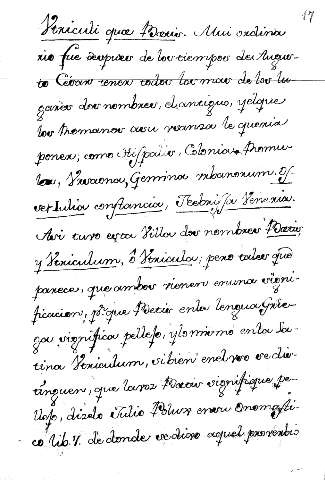 17
Vtriculi quæ Betis. Mui ordina
rio fue despues de los tiempos de Augus-
to Cesar tener todos los mas de los lu-
gares dos nombres, el antiguo, y el que
los Romanos a su usanza le querian
poner, como Hispalis, Colonia Romu-
lea, Vrsaona, Gemina urbanorum. Os
set Iulia constancia,
Asi tuvo esta Villa dos nombres
y Vtriculum, ô Vtricula; pero tales que
parece, que ambos vienen en una signi-
ficacion, pr. que en la lengua Grie-
ga significa pellejo, y lo mismo en la La-
tina Vtriculum, si bien en el uso se dis-
tinguen, que la voz signifique pe-
llejo, dizelo Julio Polux en su Onomasti-
co lib. de donde se dixo aquel proverbio